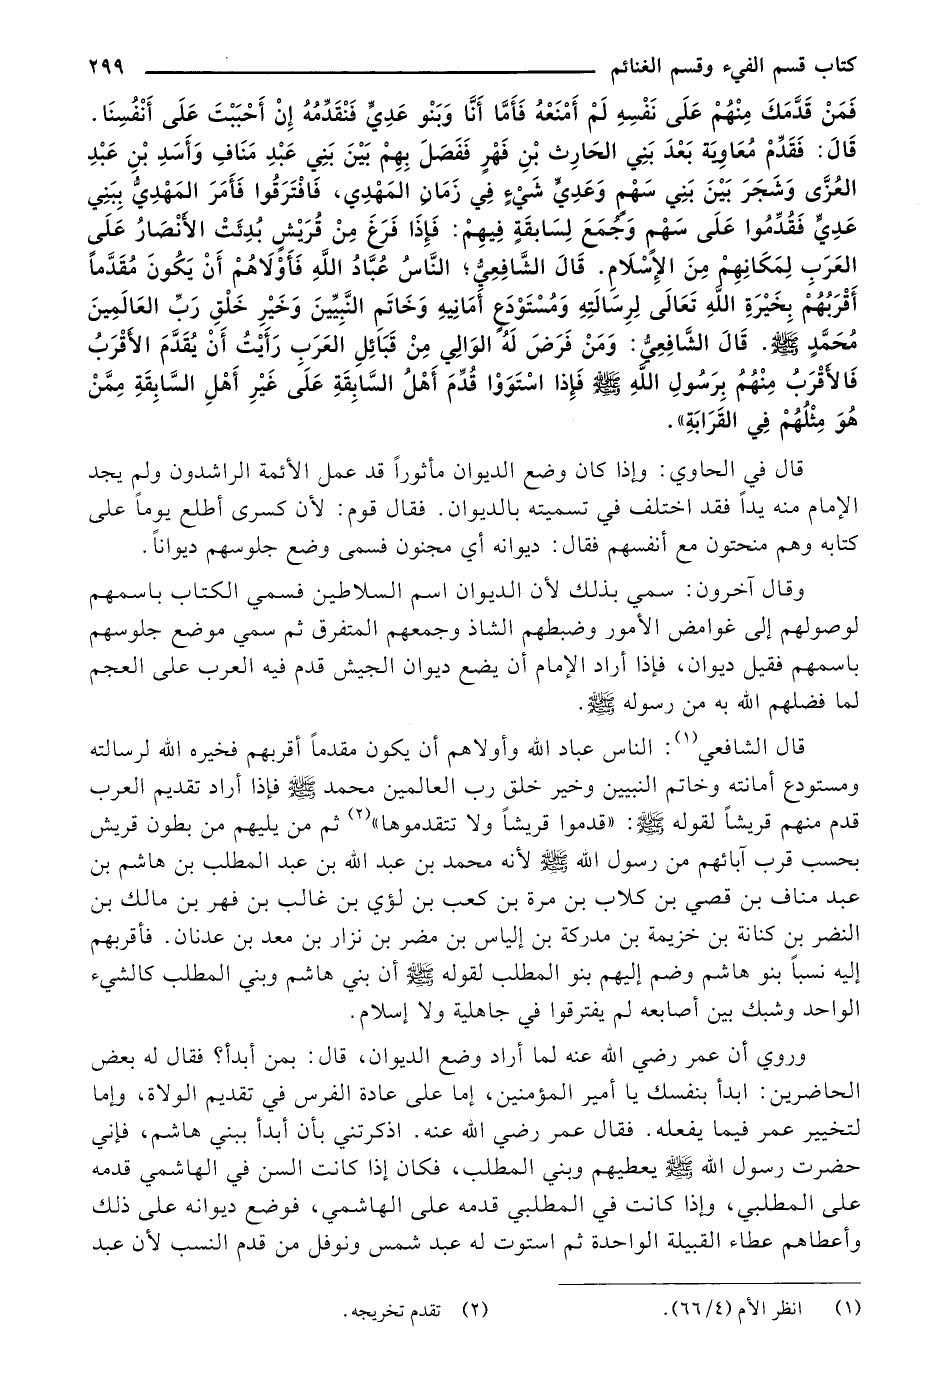 كتاب قسم الفيء وقسم الغنائم ٢٩٩
فَمَنْ قَدَّمَكَ مِنْهُمْ عَلَى نَفْسِهِ لَمْ أَمْنَعْهُ فَأَمَّا أَنَّا وَبَنْو عَدِيٍّ فَنْقَدِّمُهُ إِنْ أَحْبَبْتَ عَلَى أَنْفُسِنَا.
قَالَ: فَقَدِّمْ مُعَاوِيَة بَعْدَ بَنِي الحَارِث بْنِ فَهْرٍ فَفَصَلَ بِهِمْ بَيْنَ بَنِي عَبْدِ مَنَافِ وَأَسَدِ بْنِ عَبْدِ
العُزَّى وَشَجَرَ بَيْنَ بَنِي سَهْمٍ وَعَدِيٍّ شَيْءٍ فِي زَمَانِ المَهْدِي، فَافْتَرَقُوا فَأَمَرَ المَهْدِيُّ بِبَنِي
عَدِيٍّ فَقُدِّمُوا عَلَى سَهْمٍ وَجُمَعَ لِسَابِقَةٍ فِيهِمْ: فَإِذَا فَرَغَ مِنْ قُرَيْشٍ بُدِئَتْ الأَنْصَارُ عَلَى
العَرَبِ لِمَكَانِهِمْ مِنَ الإِسْلَامِ. قَالَ الشَّافِعِيُّ؛ النَّاسُ عُبَّادُ اللَّهِ فَأَوْلَاهُمْ أَنْ يَكُونَ مُقَدَّماً
أَقْرَبُهُمْ بِخَيْرَةِ اللَّهِ تَعَالَى لِرِسَالَتِهِ وَمُسْتَوْدَعِ أَمَانِيهِ وَخَاتَمِ النَّبِيِّينَ وَخَيْرِ خَلْقِ رَبِّ العَالَمِينَ
مُحَمَّدٍ ﷺ. قَالَ الشَّافِعِيُّ: وَمَنْ فَرَضَ لَهُ الوَالِي مِنْ قَبَائِلِ العَرَبِ رَأَيْتُ أَنْ يُقَدَّمَ الأَقْرَبُ
فَالأَقْرَبُ مِنْهُمْ بِرَسُولِ اللَّهِ ﷺ فَإِذا اسْتَوَوْا قُدِّمَ أَهْلُ السَّابِقَةِ عَلَى غَيْرِ أَهْلِ السَّابِقَةِ مِمَّنْ
هُوَ مِثْلُهُمْ فِي القَرَابَةِ».
قال في الحاوي: وإذا كان وضع الديوان مأثوراً قد عمل الأئمة الراشدون ولم يجد
الإمام منه يداً فقد اختلف في تسميته بالديوان. فقال قوم: لأن كسرى أطلع يوماً على
كتابه وهم منحتون مع أنفسهم فقال: ديوانه أي مجنون فسمى وضع جلوسهم ديواناً.
وقال آخرون: سمي بذلك لأن الديوان اسم السلاطين فسمي الكتاب باسمهم
لوصولهم إلى غوامض الأمور وضبطهم الشاذ وجمعهم المتفرق ثم سمي موضع جلوسهم
باسمهم فقيل ديوان، فإذا أراد الإمام أن يضع ديوان الجيش قدم فيه العرب على العجم
لما فضلهم الله به من رسوله ﷺ.
قال الشافعي(١): الناس عباد الله وأولاهم أن يكون مقدماً أقربهم فخيره الله لرسالته
ومستودع أمانته وخاتم النبيين وخير خلق رب العالمين محمد ﷺ فإذا أراد تقديم العرب
قدم منهم قريشاً لقوله ﷺ: «قدموا قريشاً ولا تتقدموها»(٢) ثم من يليهم من بطون قريش
بحسب قرب آبائهم من رسول الله ﷺ لأنه محمد بن عبد الله بن عبد المطلب بن هاشم بن
عبد مناف بن قصي بن كلاب بن مرة بن كعب بن لؤي بن غالب بن فهر بن مالك بن
النضر بن كنانة بن خزيمة بن مدركة بن إلياس بن مضر بن نزار بن معد بن عدنان. فأقربهم
إليه نسباً بنو هاشم وضم إليهم بنو المطلب لقوله ﷺ أن بني هاشم وبني المطلب كالشيء
الواحد وشبك بين أصابعه لم يفترقوا في جاهلية ولا إسلام.
وروي أن عمر رضي الله عنه لما أراد وضع الديوان، قال: بمن أبدأ؟ فقال له بعض
الحاضرين: ابدأ بنفسك يا أمير المؤمنين، إما على عادة الفرس في تقديم الولاة، وإما
لتخيير عمر فيما يفعله. فقال عمر رضي الله عنه. اذكرتني بأن أبدأ ببني هاشم، فإني
حضرت رسول الله ﷺ يعطيهم وبني المطلب، فكان إذا كانت السن في الهاشمي قدمه
على المطلبي، وإذا كانت في المطلبي قدمه على الهاشمي، فوضع ديوانه على ذلك
وأعطاهم عطاء القبيلة الواحدة ثم استوت له عبد شمس ونوفل من قدم النسب لأن عبد
(١) انظر الأم (٤/ ٦٦). (٢) تقدم تخريجه.